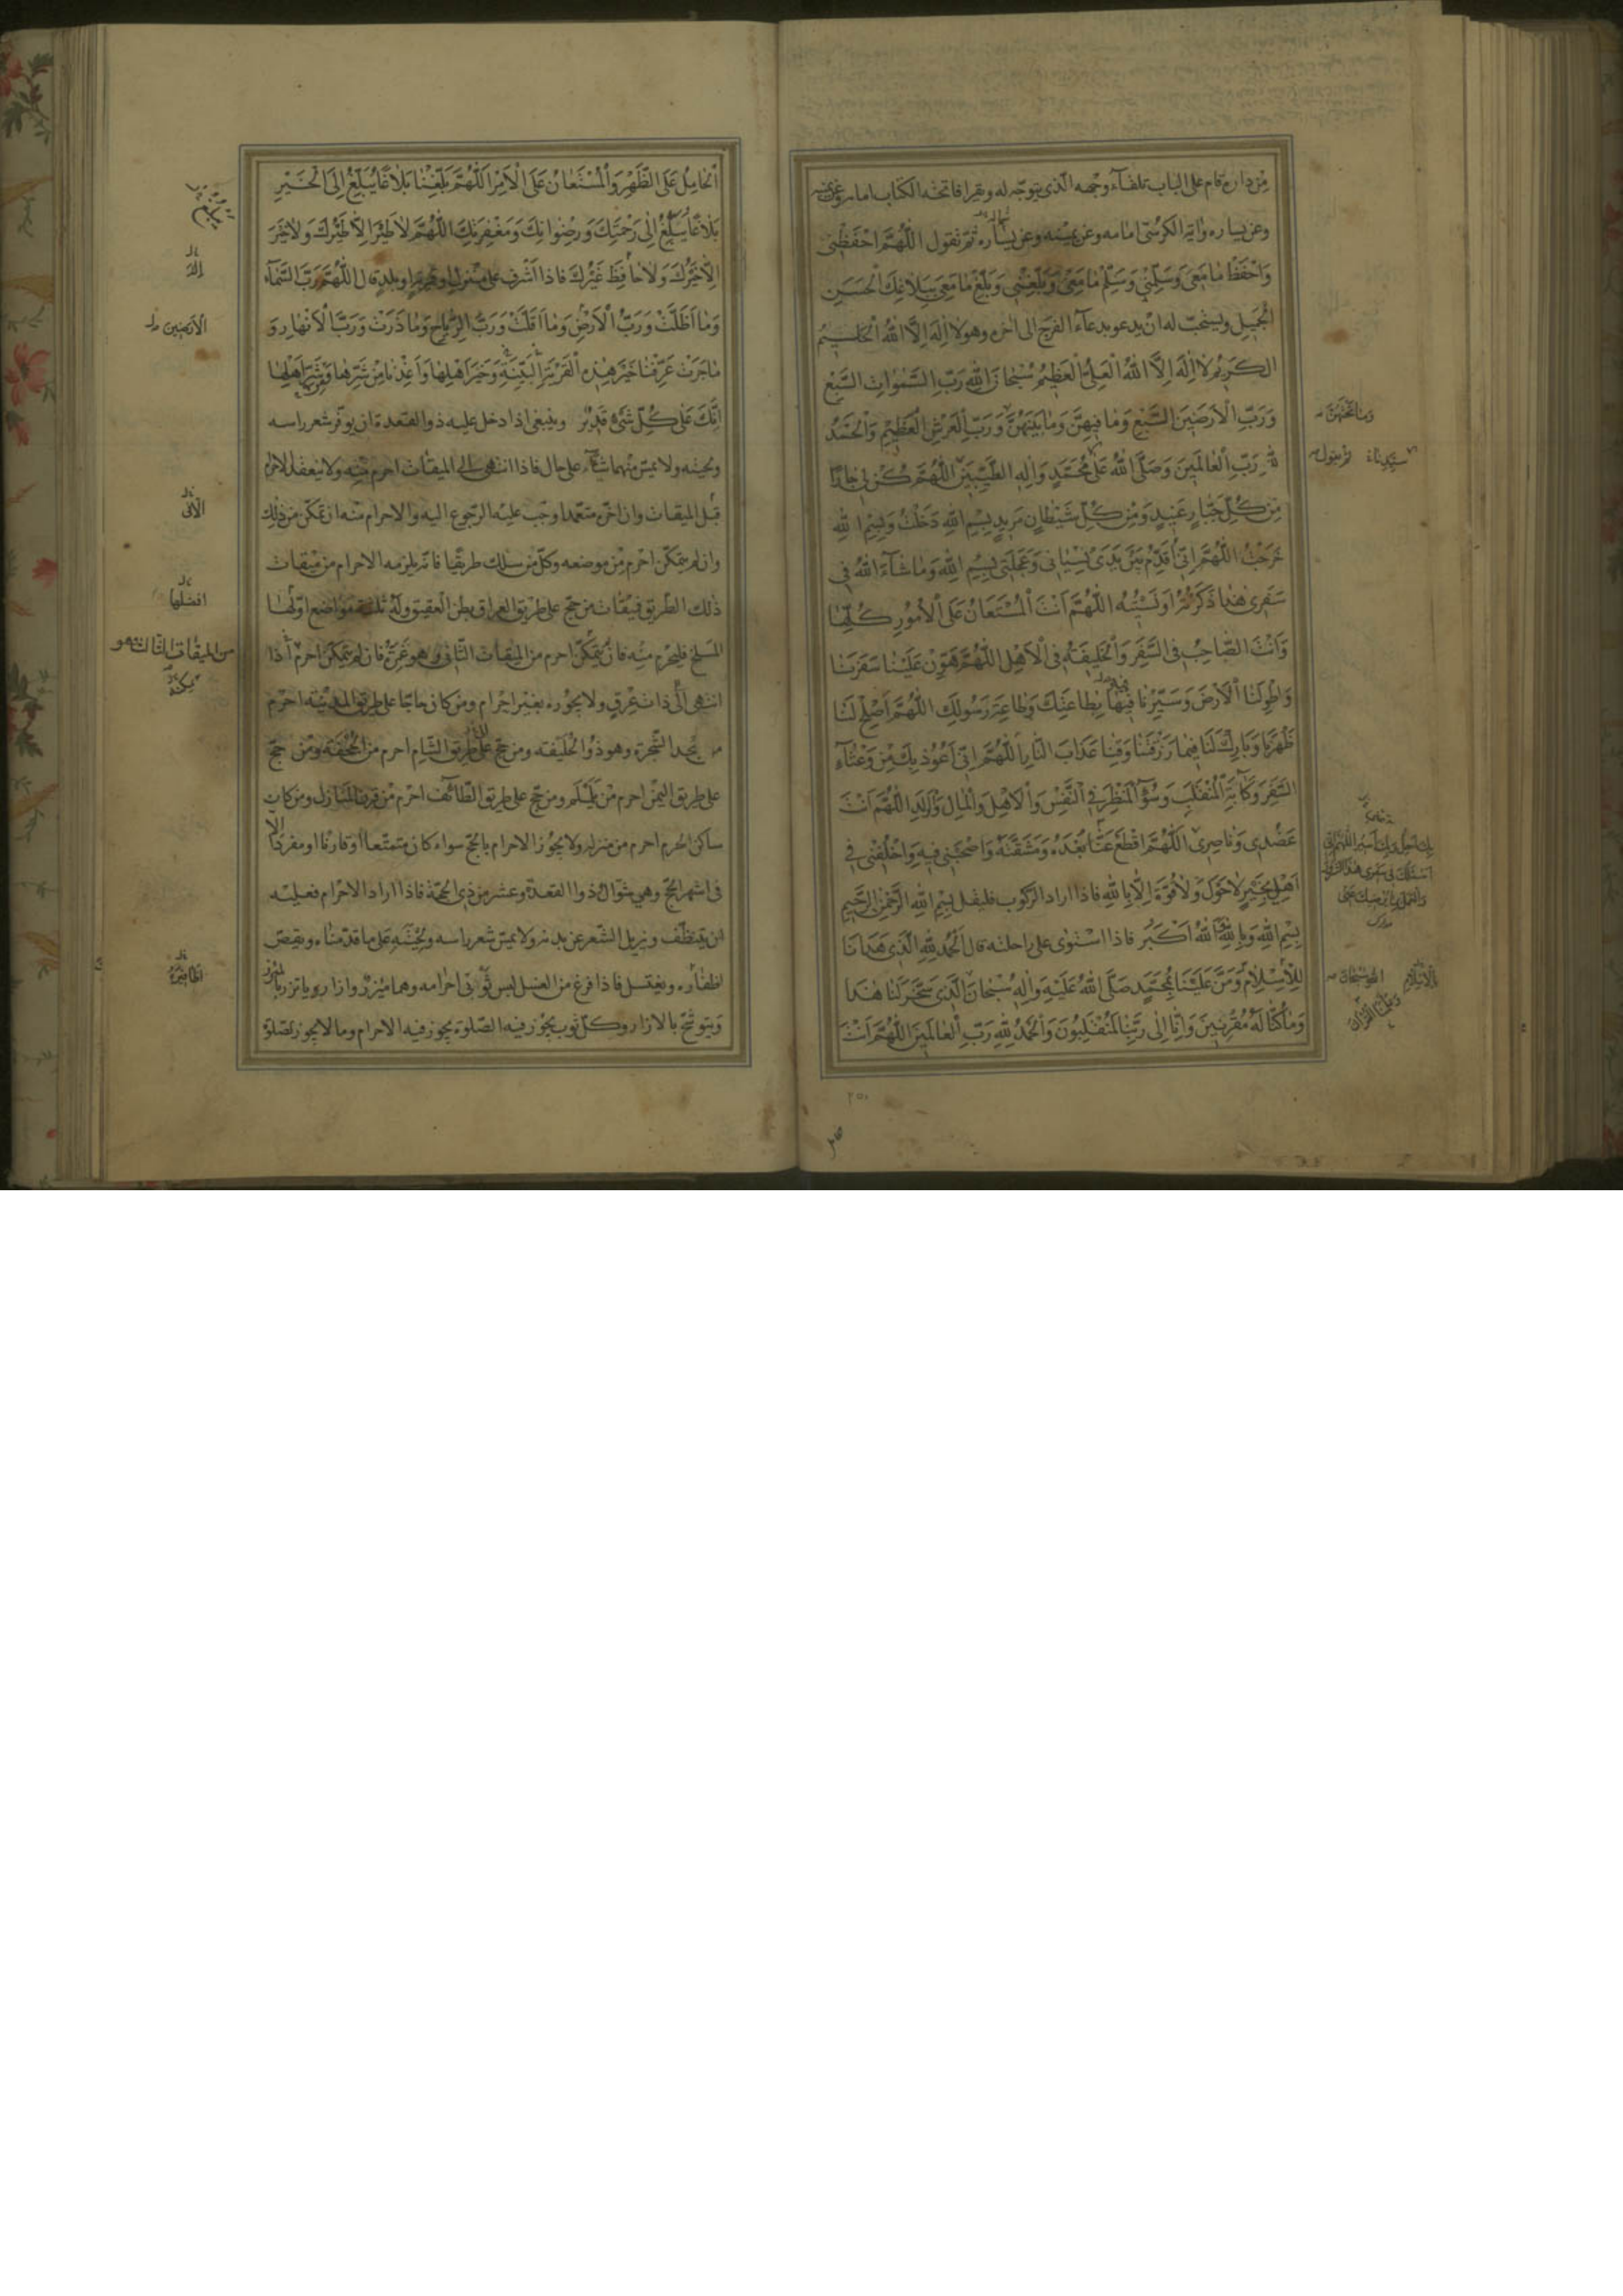 من داره قام على الباب تلقآء وجهه الّذى يتوجّه له ويقرا فاتحة الكتاب امامه وعن يمينه
وعن يساره واية الكرسّى امامه وعن يمينه وعن يساره ثمّ تقول اللّهمّ احفظنى
وَاحْفَظْ مٰا مَعِىَ وَسَلِّمْنِي وَسَلِّمْ مٰا مَعِىَ وَبَلِّغْنِي وَبَلِّغْ مٰا مَعِىَ بِبَلاٰغِكَ الْحَسَنِ
الْجَمِيلِ ويستحبّ له ان يدعو بدعآء الفرج الى اخره وهو لاٰ اِلٰهَ اِلاَّ اللّٰهُ الْحَليمُ
الكَريمُ لاٰ اِلٰهَ اِلاَّ اللّٰهُ الْعَلِىُّ الْعَظيمُ سُبْحٰانَ اللّٰهِ رَبِّ السَّمٰوٰاتِ السَّبْعِ
وَرَبِّ الْاَرَضينَ السَّبْعِ وَمٰا فيهِنَّ وَمٰا بَيْنَهُنَّ وَرَبِّ الْعَرْشِ الْعَظيمِ وَالْحَمْدُ
للّٰهِ رَبِّ الْعٰالَمينَ وَصَلَّى اللّٰهُ عَلىٰ مُحَمَّدٍ وَاٰلِهِ الطَّيِّبينَ اللّٰهُمَّ كُنْ لى جٰارًا
مِنْ كُلِّ جَبّٰارٍ عَنيدٍ وَمِنْ كُلِّ شَيْطٰانٍ مَريدٍ بِسْمِ اللّٰهِ دَخَلْتُ وَبِسْمِ اللّٰهِ
خَرَجْتُ اللّٰهُمَّ اِنّى اُقَدِّمُ بَيْنَ يَدَىْ نِسْيٰانى وَعَجَلَتى بِسْمِ اللّٰهِ وَمٰا شٰآءَ اللّٰهُ فى
سَفَرى هٰذٰا ذَكَرْتُهُ اَوْ نَسيتُهُ اللّٰهُمَّ اَنْتَ الْمُسْتَعٰانُ عَلَى الْاُمُورِ كُلِّهٰا
وَاَنْتَ الصّٰاحِبُ فى السَّفَرِ وَالْخَليفَةُ فى الْاَهْلِ اللّٰهُمَّ هَوِّنْ عَلَيْنٰا سَفَرَنٰا
وَاطْوِ لَنَا الْاَرْضَ وَسَيِّرْنٰا فيهٰا بِطٰاعَتِكَ وَطٰاعَةِ رَسُولِكَ اللّٰهُمَّ اَصْلِحْ لَنٰا
ظَهْرَنٰا وَبٰارِكْ لَنٰا فيمٰا رَزَقْتَنٰا وَقِنٰا عَذٰابَ النّٰارِ اَللّٰهُمَّ اِنّى اَعُوذُ بِكَ مِنْ وَعْثٰآءِ
السَّفَرِ وَكَاٰبَةِ الْمُنْقَلَبِ وَسُوٓءِ الْمَنْظَرِ فِى النَّفْسِ وَالْاَهْلِ وَالْمٰالِ وَالْوَلَدِ اللّٰهُمَّ اَنْتَ
عَضُدى وَنٰاصِرى اَللّٰهُمَّ اقْطَعْ عَنّٰا بُعْدَهُ وَمَشَقَّتَهُ وَاصْحَبْنى فيهِ وَاخْلُفْنى فى
اَهْلى بِخَيْرٍ لاٰ حَوْلَ وَلاٰ قُوَّةَ اِلّٰا بِاللّٰهِ فاذا اراد الرّكوب فليقل بِسْمِ اللّٰهِ الرَّحْمٰنِ الرَّحيمِ
بِسْمِ اللّٰهِ وَبِاللّٰهِ اَللّٰهُ اَكْبَرُ فاذا استوى على راحلته قال اَلْحَمْدُ لِلّٰهِ الَّذى هَدٰانٰا
لِلْاِسْلاٰمِ وَمَنَّ عَلَيْنٰا بِمُحَمَّدٍ صَلَّى اللّٰهُ عَلَيْهِ وَاٰلِهِ سُبْحٰانَ الَّذى سَخَّرَ لَنٰا هٰذٰا
وَمٰا كُنّٰا لَهُ مُقْرِنينَ وَاِنّٰا اِلىٰ رَبِّنٰا لَمُنْقَلِبُونَ وَالْحَمْدُ لِلّٰهِ رَبِّ الْعٰالَمينَ اللّٰهُمَّ اَنْتَ
وما تحتهنّ
ثم يقول
بالاسلام
وعلّمنا القرآن
٢٥٠
اَلْحٰامِلُ عَلَى الظَّهْرِ وَالْمُسْتَعٰانُ عَلَى الْاَمْرِ اَللّٰهُمَّ بَلِّغْنٰا بَلاٰغًا يُبَلِّغُ اِلَى الْخَيْرِ
بَلاٰغًا يُبَلِّغُ اِلىٰ رَحْمَتِكَ وَرِضْوٰانِكَ وَمَغْفِرَتِكَ اللّٰهُمَّ لاٰ طَيْرَ اِلاّٰ طَيْرُكَ وَلاٰ خَيْرَ
اِلاّٰ خَيْرُكَ وَلاٰ حٰافِظَ غَيْرُكَ فاذا اشرف على منزل او قرية او بلد قال اللّٰهُمَّ رَبَّ السَّمٰآءِ
وَمٰا اَظَلَّتْ وَرَبَّ الْاَرْضِ وَمٰا اَقَلَّتْ وَرَبَّ الرِّيٰاحِ وَمٰا ذَرَتْ وَرَبَّ الْاَنْهٰارِ وَ
مٰا جَرَتْ عَرِّفْنٰا خَيْرَ هٰذِهِ الْقَرْيَةِ وَخَيْرَ اَهْلِهٰا وَاَعِذْنٰا مِنْ شَرِّهٰا وَشَرِّ اَهْلِهٰا
اِنَّكَ عَلىٰ كُلِّ شَىْءٍ قَديرٌ وينبغى اذا دخل عليه ذو القعدة ان يوفّر شعر راسه
ولحيته ولا يمسّ منهما شيئا على حال فاذا انتهى الى الميقات احرم منه ولا ينعقد الاحرام
قبل الميقات وان اخّره متعمّدا وجب عليه الرّجوع اليه والاحرام منه ان تمكّن من ذلك
وان لم يتمكّن احرم من موضعه وكلّ من سلك طريقًا فانّه يلزمه الاحرام من ميقات
ذلك الطّريق فميقات من حجّ على طريق العراق بطن العقيق وله ثلثة مواضع اوّلها
المسلخ فليحرم منه فان لم يتمكّن احرم من الميقات الثّانى وهو غمرة فان لم يتمكّن احرم اذا
انتهى الى ذات عرق ولا يجوزه بغير احرام ومن كان حاجّا على طريق المدينة احرم
من مسجد الشّجرة وهو ذو الحليفة ومن حجّ على طريق الشّام احرم من الجحفة ومن حجّ
على طريق اليمن احرم من يلملم ومن حجّ على طريق الطّائف احرم من قرن المنازل ومن كان
ساكن الحرم احرم من منزله ولا يجوز الاحرام بالحجّ سواء كان متمتّعا او قارنا او مفردًا الّا
فى اشهر الحجّ وهى شوّال وذو القعدة وعشر من ذى الحجّة فاذا اراد الاحرام فعليه
ان يتنظّف ويزيل الشّعر عن بدنه ولا يمسّ شعر راسه ولحيته على ما قدّمناه ويقصّ
اظفاره ويغتسل فاذا فرغ من الغسل لبس ثوبى احرامه وهما ميزر وازار يأتزر بالميزر
ويتوشّح بالازار وكلّ ثوب يجوز فيه الصّلوة يجوز فيه الاحرام وما لا يجوز الصّلوة
الارضين
افضلها
من الميقات الثالث وهو
اظافيره